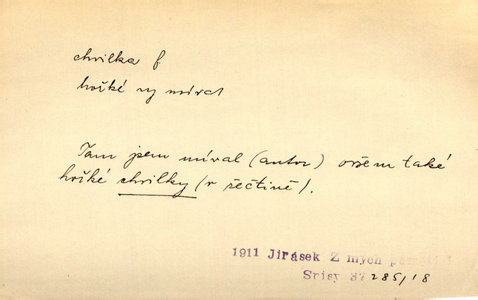 chvilka f
hořké ~y mívat
Tam jsem míval (autor) ovšem také
hořké chvilky (v řečtině).
1911 Jirásek Z mých pamětí I
Spisy 37 285/18